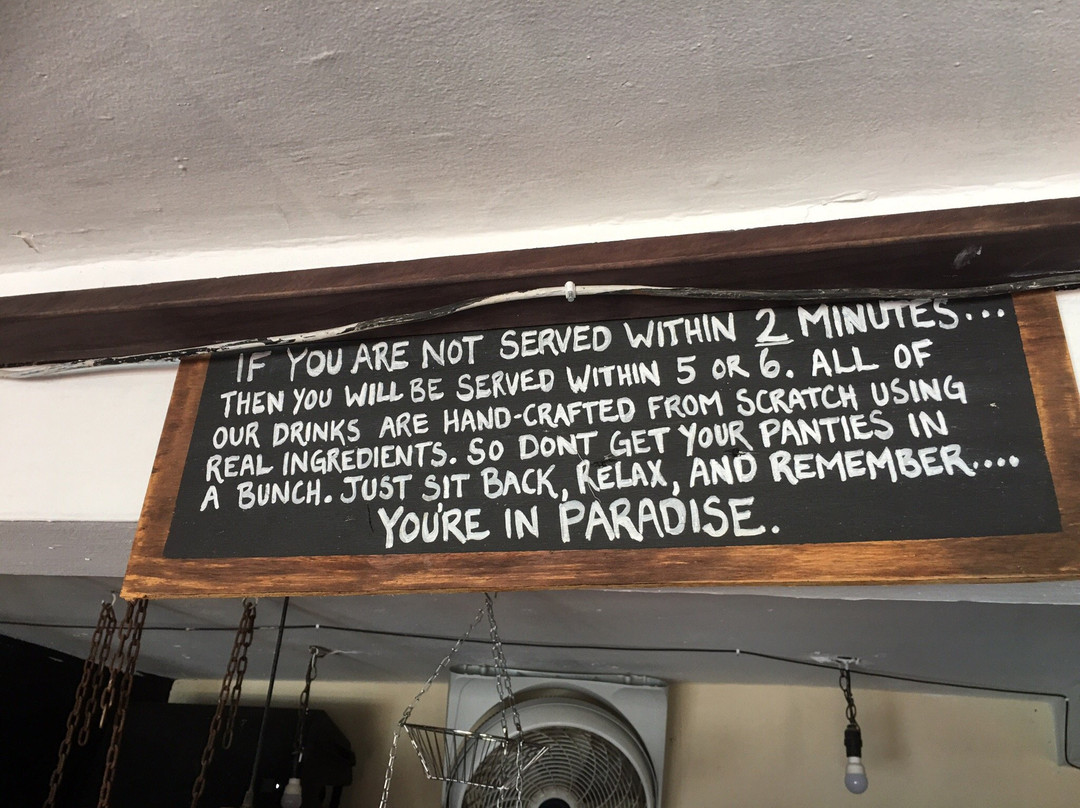 IF YOU ARE NOT SERVED WITHIN 2 MINUTES...
THEN YOU WILL BE SERVED WITHIN 5 OR 6. ALL OF
OUR DRINKS ARE HAND-CRAFTED FROM SCRATCH USING
REAL INGREDIENTS. SO DONT GET YOUR PANTIES IN
A BUNCH. JUST SIT BACK, RELAX, AND REMEMBER....
YOU'RE IN PARADISE.